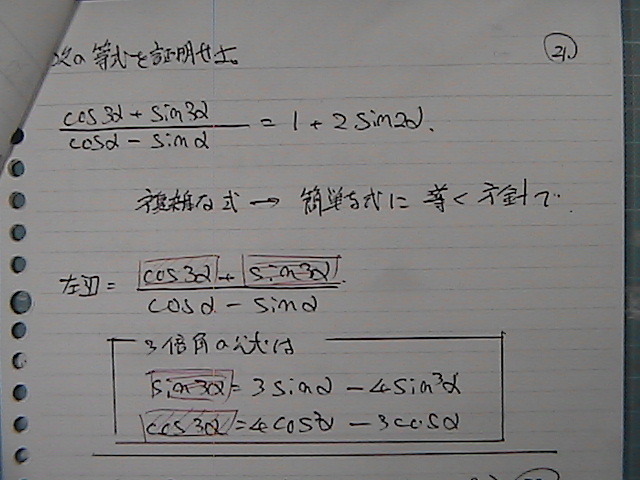 次の等式を証明せよ。
21.
cos3α + sin3α / cosα - sinα = 1 + 2sin2α.
複雑な式 → 簡単な式に導く方針で
左辺 = cos3α + sin3α / cosα - sinα.
3倍角の公式は
sin3α = 3sinα - 4sin³α
cos3α = 4cos³α - 3cosα